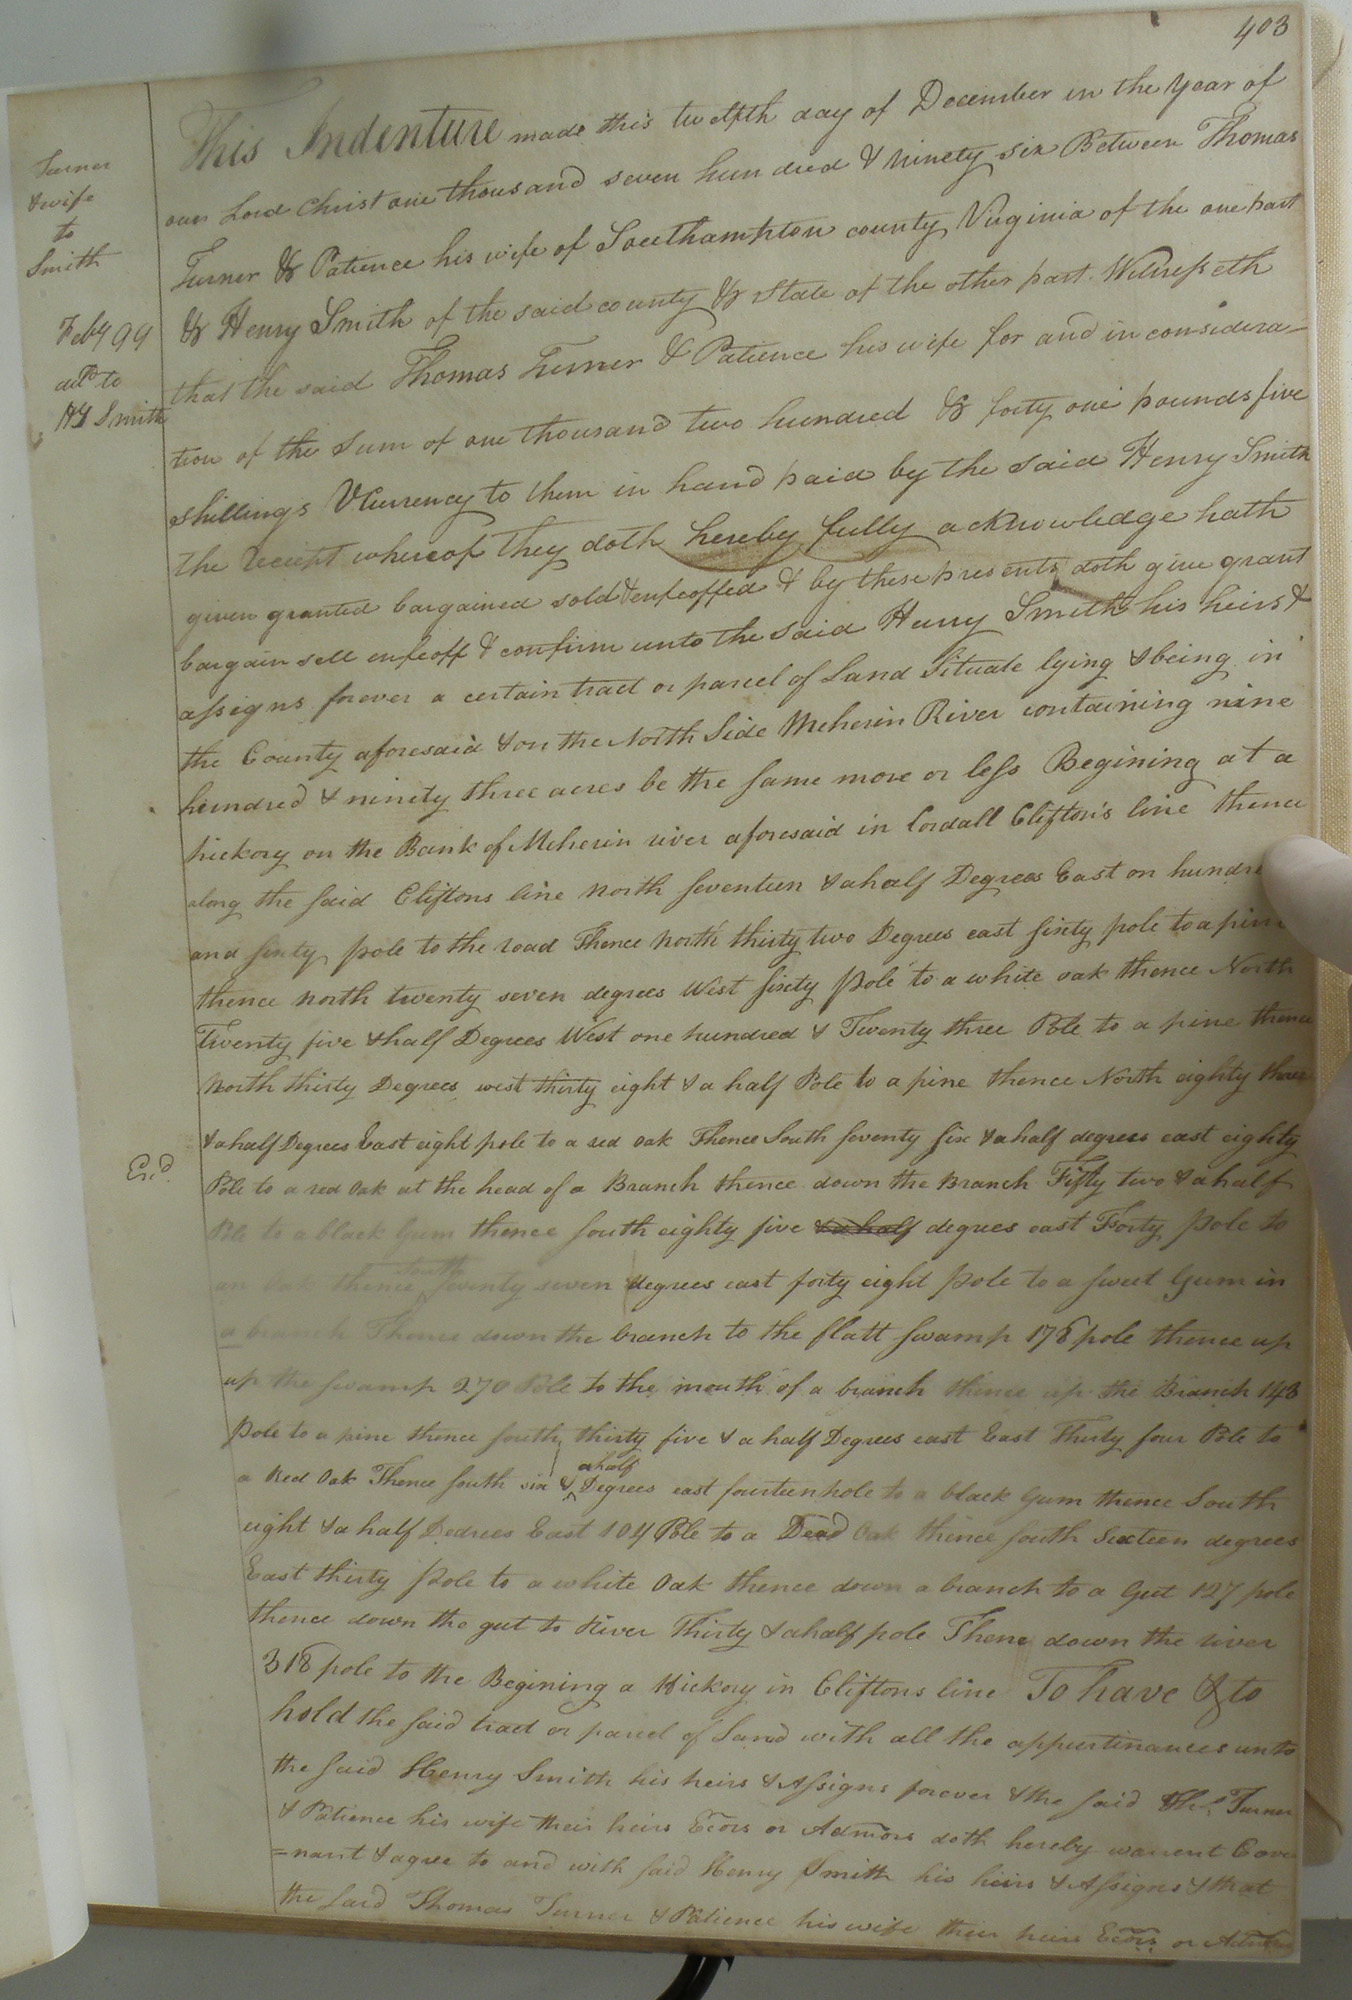 403
Turner
& wife
to
Smith
Feby 99
deld to
HY Smith
Exd.
This Indenture made this twelfth day of December in the Year of
our Lord Christ one thousand seven hundred & ninety six Between Thomas
Turner & Patience his wife of Southampton county Virginia of the one part
& Henry Smith of the said county & State of the other part. Witnesseth
that the said Thomas Turner & Patience his wife for and in considera-
tion of the Sum of one thousand two hundred & forty one pounds five
shillings VCurrency to them in hand paid by the said Henry Smith
the receipt whereof they doth hereby fully acknowledge hath
given granted bargained sold & enfeoffed & by these presents doth give grant
bargain sell enfeoff & confirm unto the said Henry Smith his heirs &
assigns forever a certain tract or parcel of Land Situate lying & being in
the County aforesaid & on the North Side Meherin River containing nine
hundred & ninety three acres be the same more or less Begining at a
hickory on the Bank of Meherin river aforesaid in Cordall Clifton's line thence
along the said Cliftons line north seventeen & a half Degrees East on hundre
and sixty pole to the road Thence north thirty two Degrees east sixty pole to a pine
thence north twenty seven degrees West sixty pole to a white oak thence North
Twenty five & half Degrees West one hundred & Twenty three Pole to a pine thence
North thirty Degrees west thirty eight & a half Pole to a pine thence North eighty three
& a half Degrees East eight pole to a red oak Thence South seventy six & a half degrees east eighty
Pole to a red oak at the head of a Branch thence down the Branch Fifty two & a half
Pole to a black Gum thence south eighty five & a half degrees east Forty pole to
an oak thence South seventy seven degrees east forty eight pole to a sweet Gum in
a branch Thence down the branch to the flatt swamp 178 pole thence up
up the swamp 270 Pole to the mouth of a branch thence up the Branch 148
Pole to a pine thence south thirty five & a half Degrees east East Thirty four Pole to
a Red Oak Thence South six & a half Degrees east fourteen pole to a black Gum thence South
eight & a half Degrees East 104 Pole to a Dead Oak thence south sixteen degrees
East thirty pole to a white Oak thence down a branch to a Gut 127 pole
thence down the gut to River Thirty & a half pole Thene down the river
318 pole to the Begining a Hickory in Cliftons line To have & to
hold the said tract or parcel of Land with all the appurtinances unto
the said Henry Smith his heirs & Assigns forever & the said Ths. Turner
& Patience his wife their heirs Ecors or Admors doth hereby warrent Cove
=nant & agree to and with said Henry Smith his heirs & Assigns & that
the said Thomas Turner & Patience his wife their heirs Ecors or